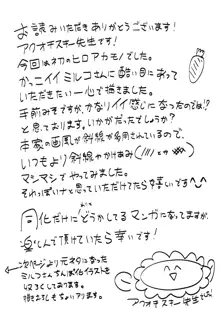 お読みいただきありがとうございます!
アクオチスキー先生です!
今回は初のヒロアカモノでした。
かっこイイミルコさんに酷い目にあって
いただきたい一心で描きました。
手前みそですが、かなりイイ感じになったのでは!?
と思っております。いかがだったでしょうか?
本家の画風が斜線が多用されているので、
いつもより斜線やかけあみ(
マシマシでやってみました。
それっぽいナと思っていただけたら幸いです^^
同化だけにどうかしてるマンガになってますが、
楽しんで頂けていたら幸いです!
次ページより元ネタになった
ミルコさんちんぽ化イラストを
してあります。
描きおろしもちょいアリます。
アクオチスキー先生でした